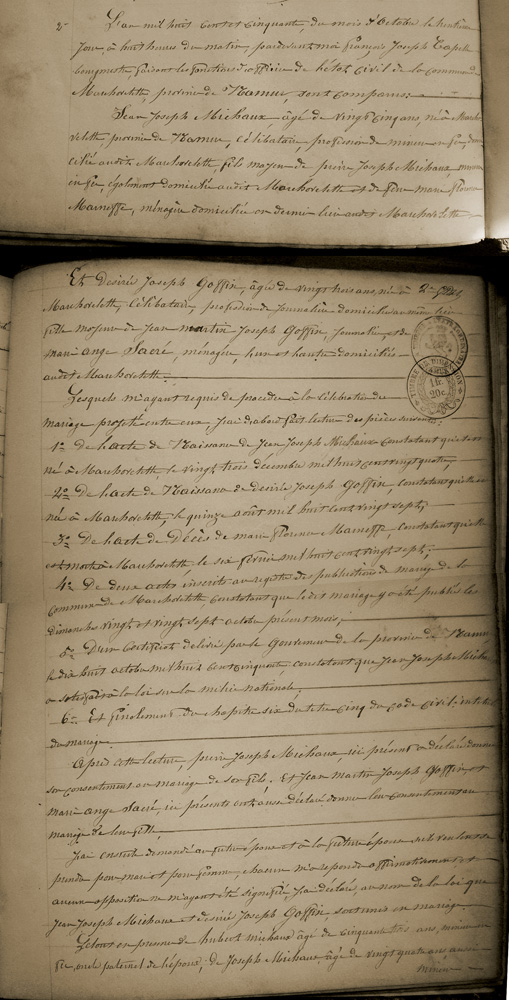 2e L'an mil huit cent et cinquante, du mois d'octobre le trentième
jour, à huit heures du matin, pardevant moi françois Joseph Capelle
bourgmestre, faisant les fonctions d'officier de l'état civil de la commune de
Marchovelette, province de Namur, sont comparus:
Jean Joseph Michaux, âgé de vingt cinq ans, né à Marcho
velette, province de Namur, célibataire, profession de mineur en fer, domi
cilié audit Marchovelette, fils majeur de pierre Joseph Michaux, mineur
en fer, également domicilié audit Marchovelette et de feue marie florence
Marneffe, ménagère domiciliée en dernier lieu audit Marchovelette
Et desirée Joseph Goffin, âgée de vingt trois ans, née à
Marchovelette, célibataire, profession de Journalière domiciliée au même lieu
fille majeure de Jean martin Joseph Goffin, Journalier, et de
marie ange Sacré, ménagère, l'un et l'autre domiciliés
audit Marchovelette.
Lesquels m'ayant requis de procéder à la célébration du
mariage projetté entre eux, J'ai d'abord fait lecture des pièces suivantes:
1° De l'acte de Naissance de Jean Joseph Michaux constatant qu'il est
né à Marchovelette, le vingt trois decembre mil huit cent vingt quatre;
2° De l'acte de Naissance de desirée Joseph Goffin, constatant qu'elle est
née à Marchovelette, le quinze août mil huit cent vingt sept;
3° De l'acte de Décès de marie florence Marneffe, constatant qu'elle
est morte à Marchovelette le six février mil huit cent vingt sept;
4° De deux actes inscrits au registre des publications de mariage de la
commune de Marchovelette constatant que le dit mariage y a été publié les
dimanches vingt et vingt sept octobre présent mois;
5° D'un certificat délivré par le Gouverneur de la province de Namur
le dix huit octobre mil huit cent cinquante, constatant que Jean Joseph Michaux
a satisfait à la loi sur la milice nationale;
6° Et finalement du chapitre six du titre cinq du code civil, intitulé
du mariage.
Après cette lecture, pierre Joseph Michaux, ici présent a déclaré donner
son consentement au mariage de son fils. Et Jean martin Joseph Goffin, et
marie ange Sacré, ici présents ont aussi déclaré donner leur consentement au
mariage de leur fille.
J'ai ensuite demandé au futur époux et à la future épouse s'ils veulent se
prendre pour mari et pour femme, chacun m'a répondu affirmativement et
aucune opposition ne m'ayant été signifiée, J'ai déclaré au nom de la loi que
Jean Joseph Michaux et desirée Joseph Goffin, sont unis en mariage.
Le tout en présence de hubert michaux âgé de cinquante ans, mineur en
fer, oncle paternel de l'époux; de Joseph Michaux, âgé de vingt quatre ans, aussi
mineur